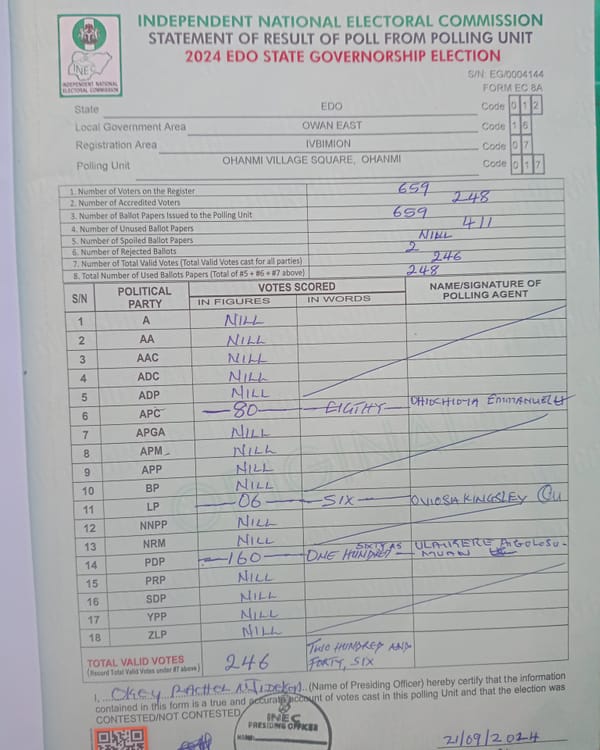 INDEPENDENT NATIONAL ELECTORAL COMMISSION
STATEMENT OF RESULT OF POLL FROM POLLING UNIT
2024 EDO STATE GOVERNORSHIP ELECTION
INEC
INDEPENDENT NATIONAL
ELECTORAL COMMISSION
S/N: EG/0004144
FORM EC 8A
State EDO Code 0 1 2
Local Government Area OWAN EAST Code 1 6
Registration Area IVBIMION Code 0 7
Polling Unit OHANMI VILLAGE SQUARE, OHANMI Code 0 1 7
1. Number of Voters on the Register 659
2. Number of Accredited Voters 248
3. Number of Ballot Papers Issued to the Polling Unit 659
4. Number of Unused Ballot Papers 411
5. Number of Spoiled Ballot Papers NILL
6. Number of Rejected Ballots 2
7. Number of Total Valid Votes (Total Valid Votes cast for all parties) 246
8. Total Number of Used Ballots Papers (Total of #5 + #6 + #7 above) 248
S/N POLITICAL PARTY VOTES SCORED NAME/SIGNATURE OF POLLING AGENT
IN FIGURES IN WORDS
1 A NILL
2 AA NILL
3 AAC NILL
4 ADC NILL
5 ADP NILL
6 APC 80 EIGTHY EMMANUEL
7 APGA NILL
8 APM NILL
9 APP NILL
10 BP NILL
11 LP 06 SIX OVIOSA KINGSLEY
12 NNPP NILL
13 NRM NILL
14 PDP 160 ONE HUNDRED
15 PRP NILL
16 SDP NILL
17 YPP NILL
18 ZLP NILL
TOTAL VALID VOTES 246 TWO HUNDRED AND
(Record Total Valid Votes under #7 above) FORTY, SIX
I, OKEY RACHEL (Name of Presiding Officer) hereby certify that the information
contained in this form is a true and accurate account of votes cast in this polling Unit and that the election was
CONTESTED/NOT CONTESTED
INEC
PRESIDING OFFICER
21/09/2024